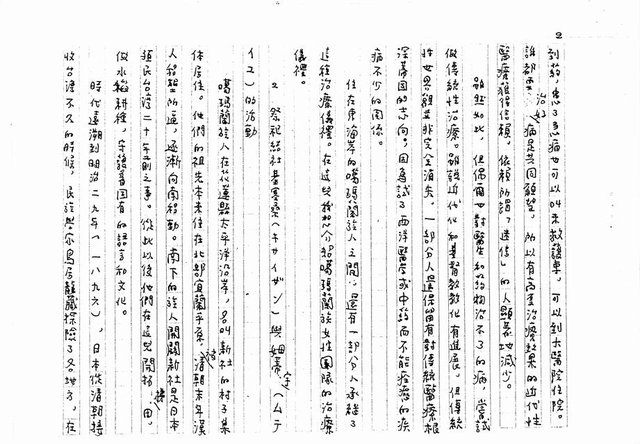 2
到藥，患了急病也可以叫來救護車，可以到大醫院住院。
誰都要治好人病是共同願望，所以有高度治療效果的近代性
醫療獲得信賴，依賴所謂「迷信」的人顯著地減少。
雖然如此，但偶爾也對醫生和藥物治不了的病，嘗試
做傳統性治療。雖說近代化和基督教教化有進展，但傳統
性世界觀並非完全消失，一部分人還保留有對傳統醫療根
深蒂固的志向。因為試了西洋醫學或中藥而不能痊癒的疾
病不少的關係。
住在東海岸的噶瑪蘭族人之間，還有一部分人承繼了
這種治療儀禮。在這兒我想介紹噶瑪蘭族女性團隊的治療
儀禮。
2 祭祀結社基塞桑（キサイザン）與姆帝（ムティユ）的活動
噶瑪蘭族人在花蓮縣太平洋沿岸，名叫新社的村子集
體居住。他們的祖先本來住在北部宜蘭平原，清朝末年被漢
人移墾所逼，逐漸向南移動。南下的族人開闢新社是日本
領民台灣二十年前之事。從此以後他們在這兒開拓田，
做水稻耕種，守護著固有的語言和文化。
時代遠溯到明治二九年（一八九六），日本從清朝接
收台灣不久的時候，民族學家鳥居龍藏探險了各地方，在